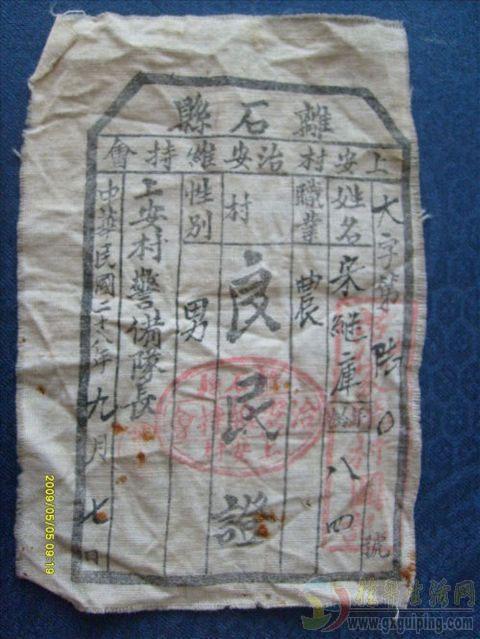 離石縣
上安村治安維持會
大字第 陸〇號
姓名 宋繼庫 年齡 八四
職業 農
村 良民證
性別 男
上安村警備隊長
中華民國二十八年九月七日
2009/05/05 09:19
www.gzguiping.com